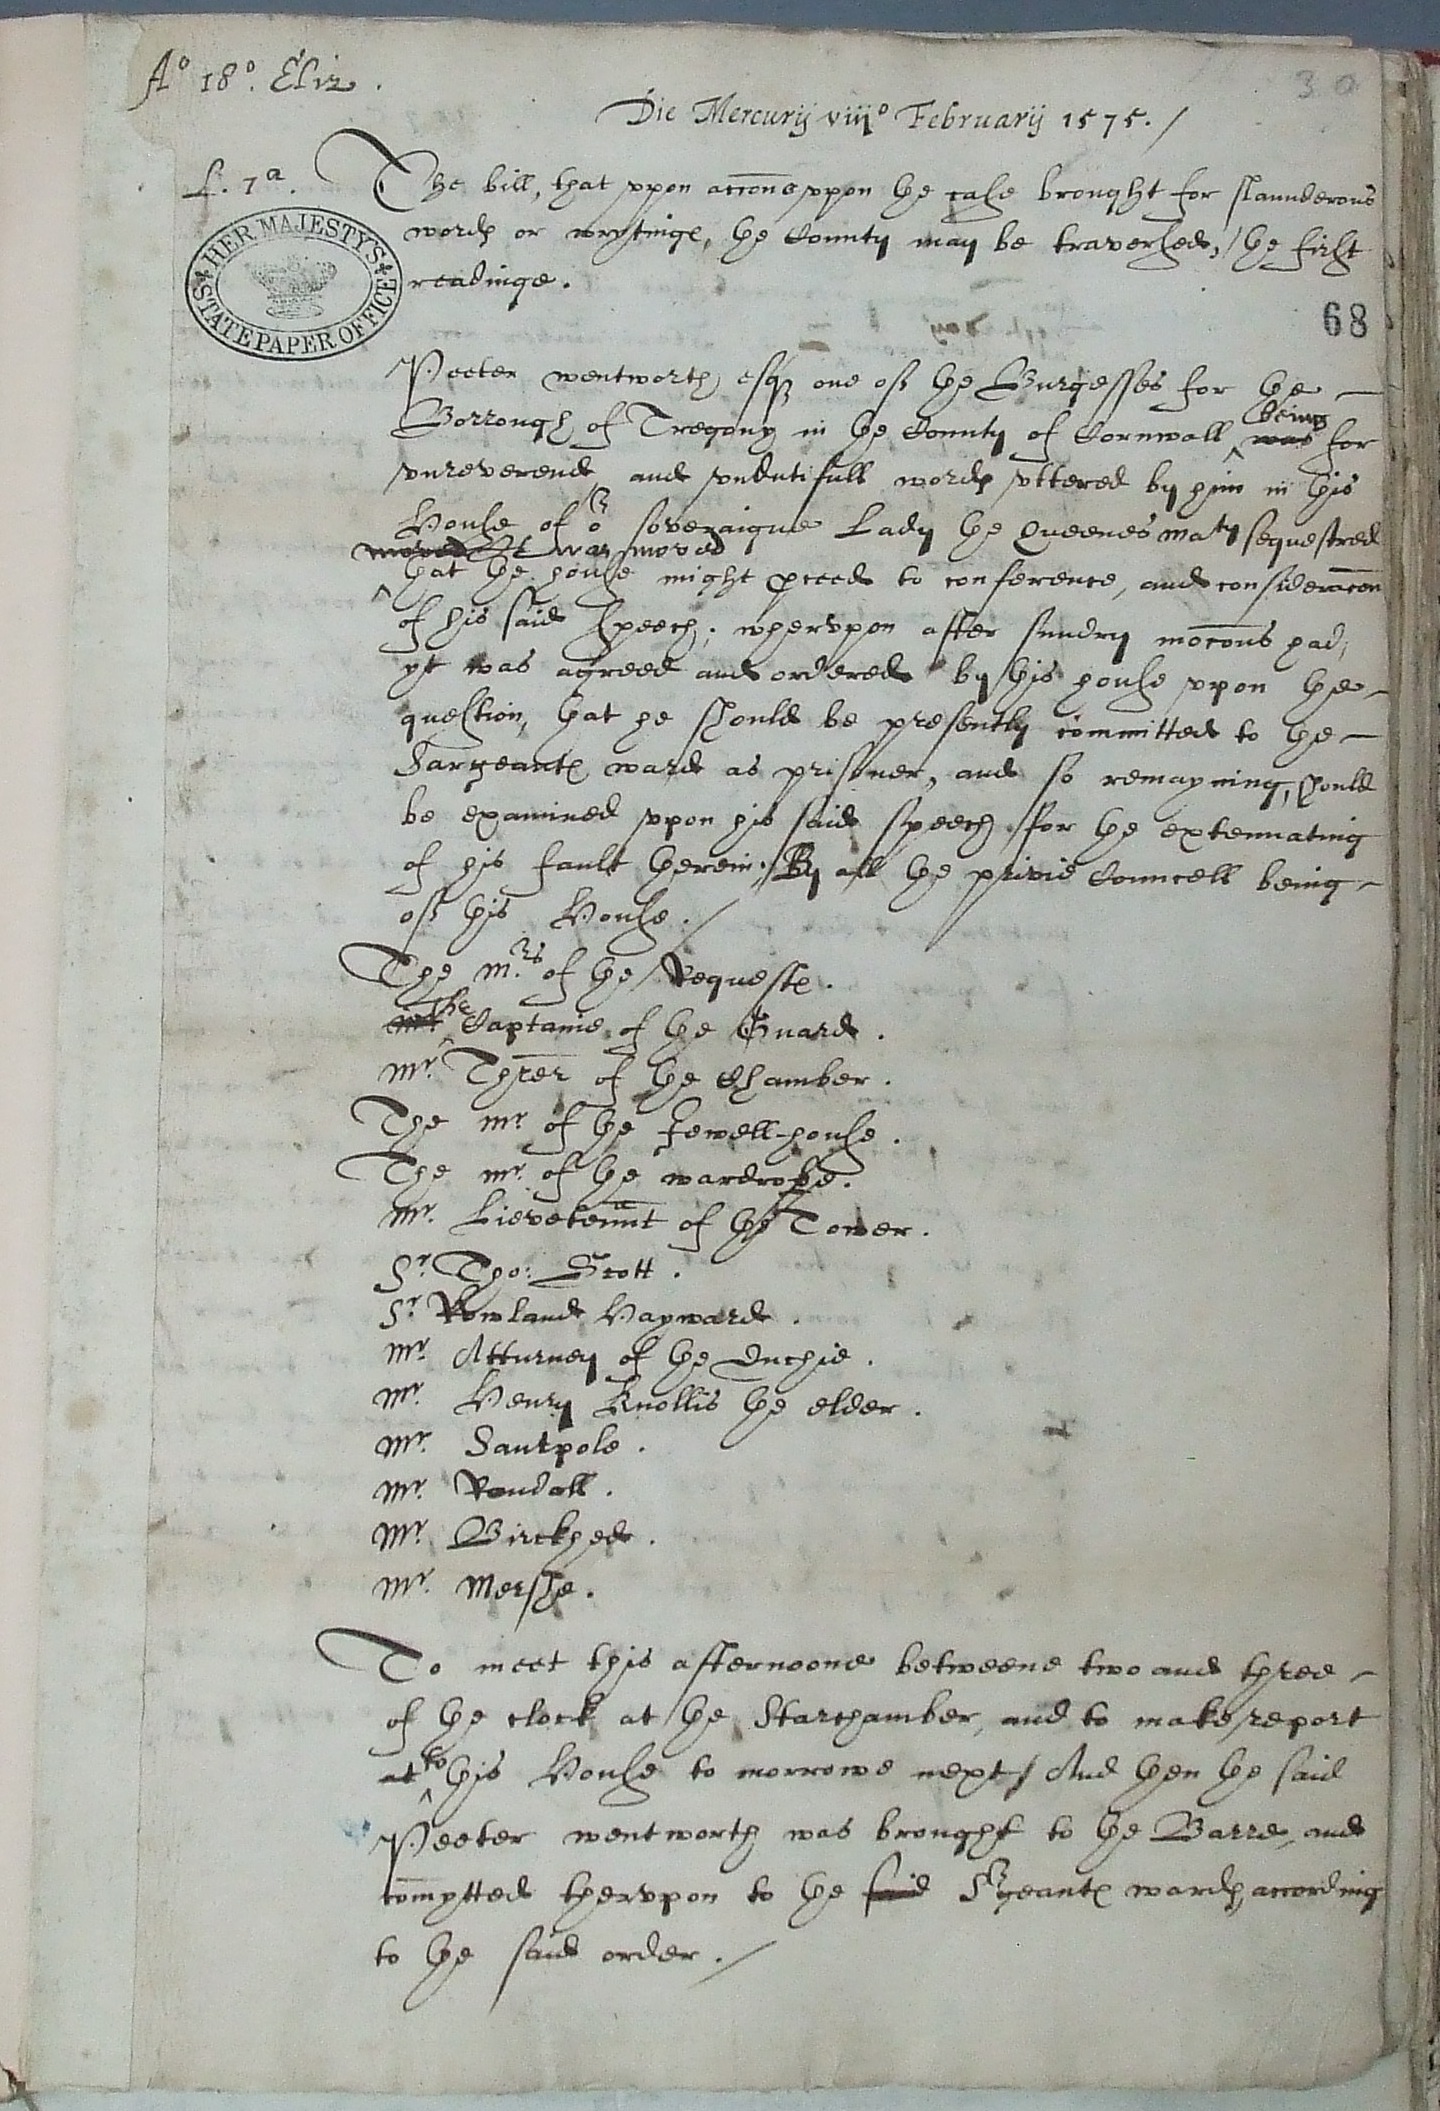 Ao 18o. Eliz.
30
Die Mercurij viijo Februarij 1575./
L. 1a.
The bill, that vppon accons vppon the case brought for slaunderous
wordes or wrytinges, the County may be traversed,/ the first
readinge.
HER MAJESTY'S
STATE PAPER OFFICE
68
Peeter wentworth, esqr one of the Burgesses for the
Borrough of Tregony in the County of Cornwall was being for
vnreverend and vndutifull wordes vttered by him in this
House of or soveraigne Lady the Queenes maty sequestred
moved It was moved
that the house might pceed to conference, and consideracon
of his said speech; whervpon after sundry mocons had,
yt was agreed and ordered by this house vpon the
question, that he should be presently committed to the
Sargeantes ward as prisoner, and so remayning, should
be examined vpon his said speech for the extenuating
of his fault therein;/ By all the privie Councell being
of this House./
The Mrs of the Requestes.
the Captaine of the Guard.
Mr. Threr of the Chamber.
The Mr of the Jewell-house.
The Mr. of the wardrobe.
Mr. Lievetennt of the Tower.
Sr. Tho: Scott.
Sr Rowland Hayward.
Mr. Atturney of the Duchie.
Mr. Henry Knollis the elder.
Mr. Santpole.
Mr. Randall.
Mr. Birckhed.
Mr. Mershe.
To meet this afternoone betweene two and three
of the clock at the Starchamber, and to make report
at to this House to morrowe next/ And then the said
Peeter wentworth was brought to the Barre, and
comytted thervpon to the said Srgeantes wardes, according
to the said order./